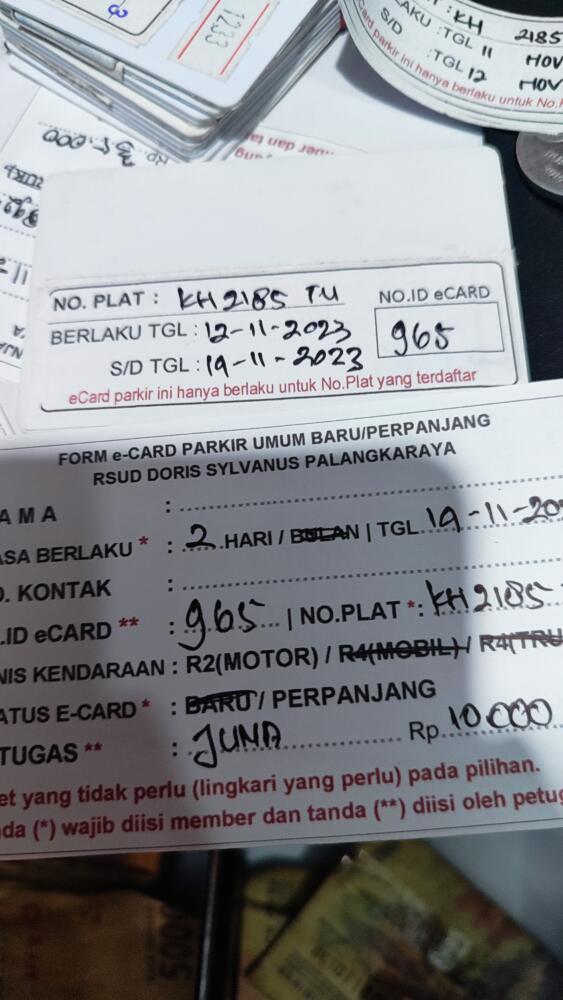 1233
: KH 2185
AKU :TGL 11 NOV
S/D :TGL 12 NOV
Card parkir ini hanya berlaku untuk No.P
Rp. 35.000
NO. PLAT : KH 2185 TU
NO.ID eCARD
BERLAKU TGL : 12-11-2023
965
S/D TGL : 19-11-2023
eCard parkir ini hanya berlaku untuk No.Plat yang terdaftar
FORM e-CARD PARKIR UMUM BARU/PERPANJANG
RSUD DORIS SYLVANUS PALANGKARAYA
AMA :
ASA BERLAKU * : 2 HARI / BULAN | TGL 19-11-20
O. KONTAK :
.ID eCARD ** : 965 | NO.PLAT *: KH 2185
NIS KENDARAAN : R2(MOTOR) / R4(MOBIL) / R4(TRU
ATUS E-CARD * : BARU / PERPANJANG
TUGAS ** : JUNA Rp. 10.000
et yang tidak perlu (lingkari yang perlu) pada pilihan.
da (*) wajib diisi member dan tanda (**) diisi oleh petug